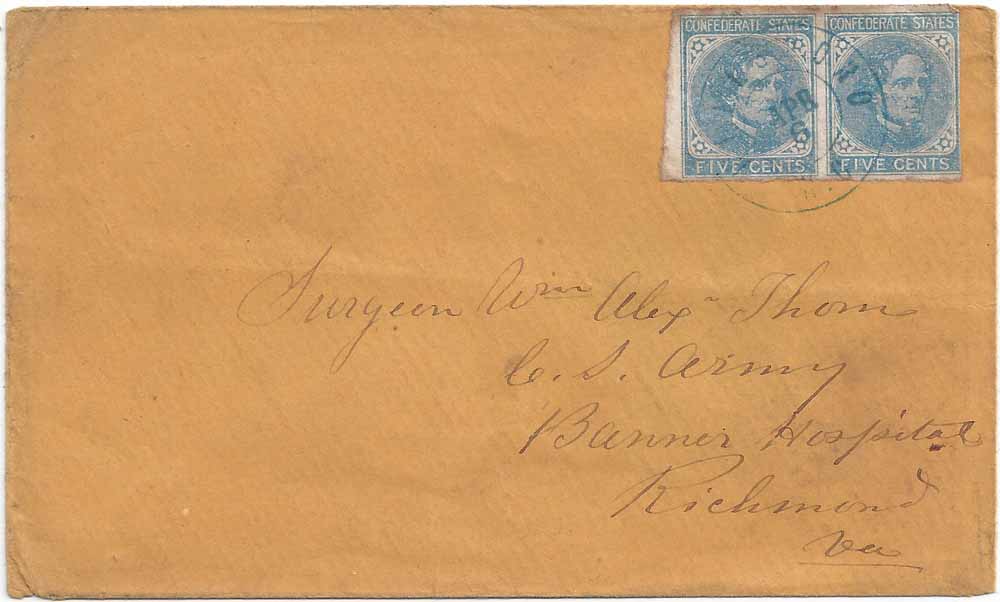 CONFEDERATE STATES CONFEDERATE STATES
APR
6
FIVE CENTS FIVE CENTS
Surgeon Wm Alexr Thom
C. S. Army
Banner Hospital
Richmond
Va